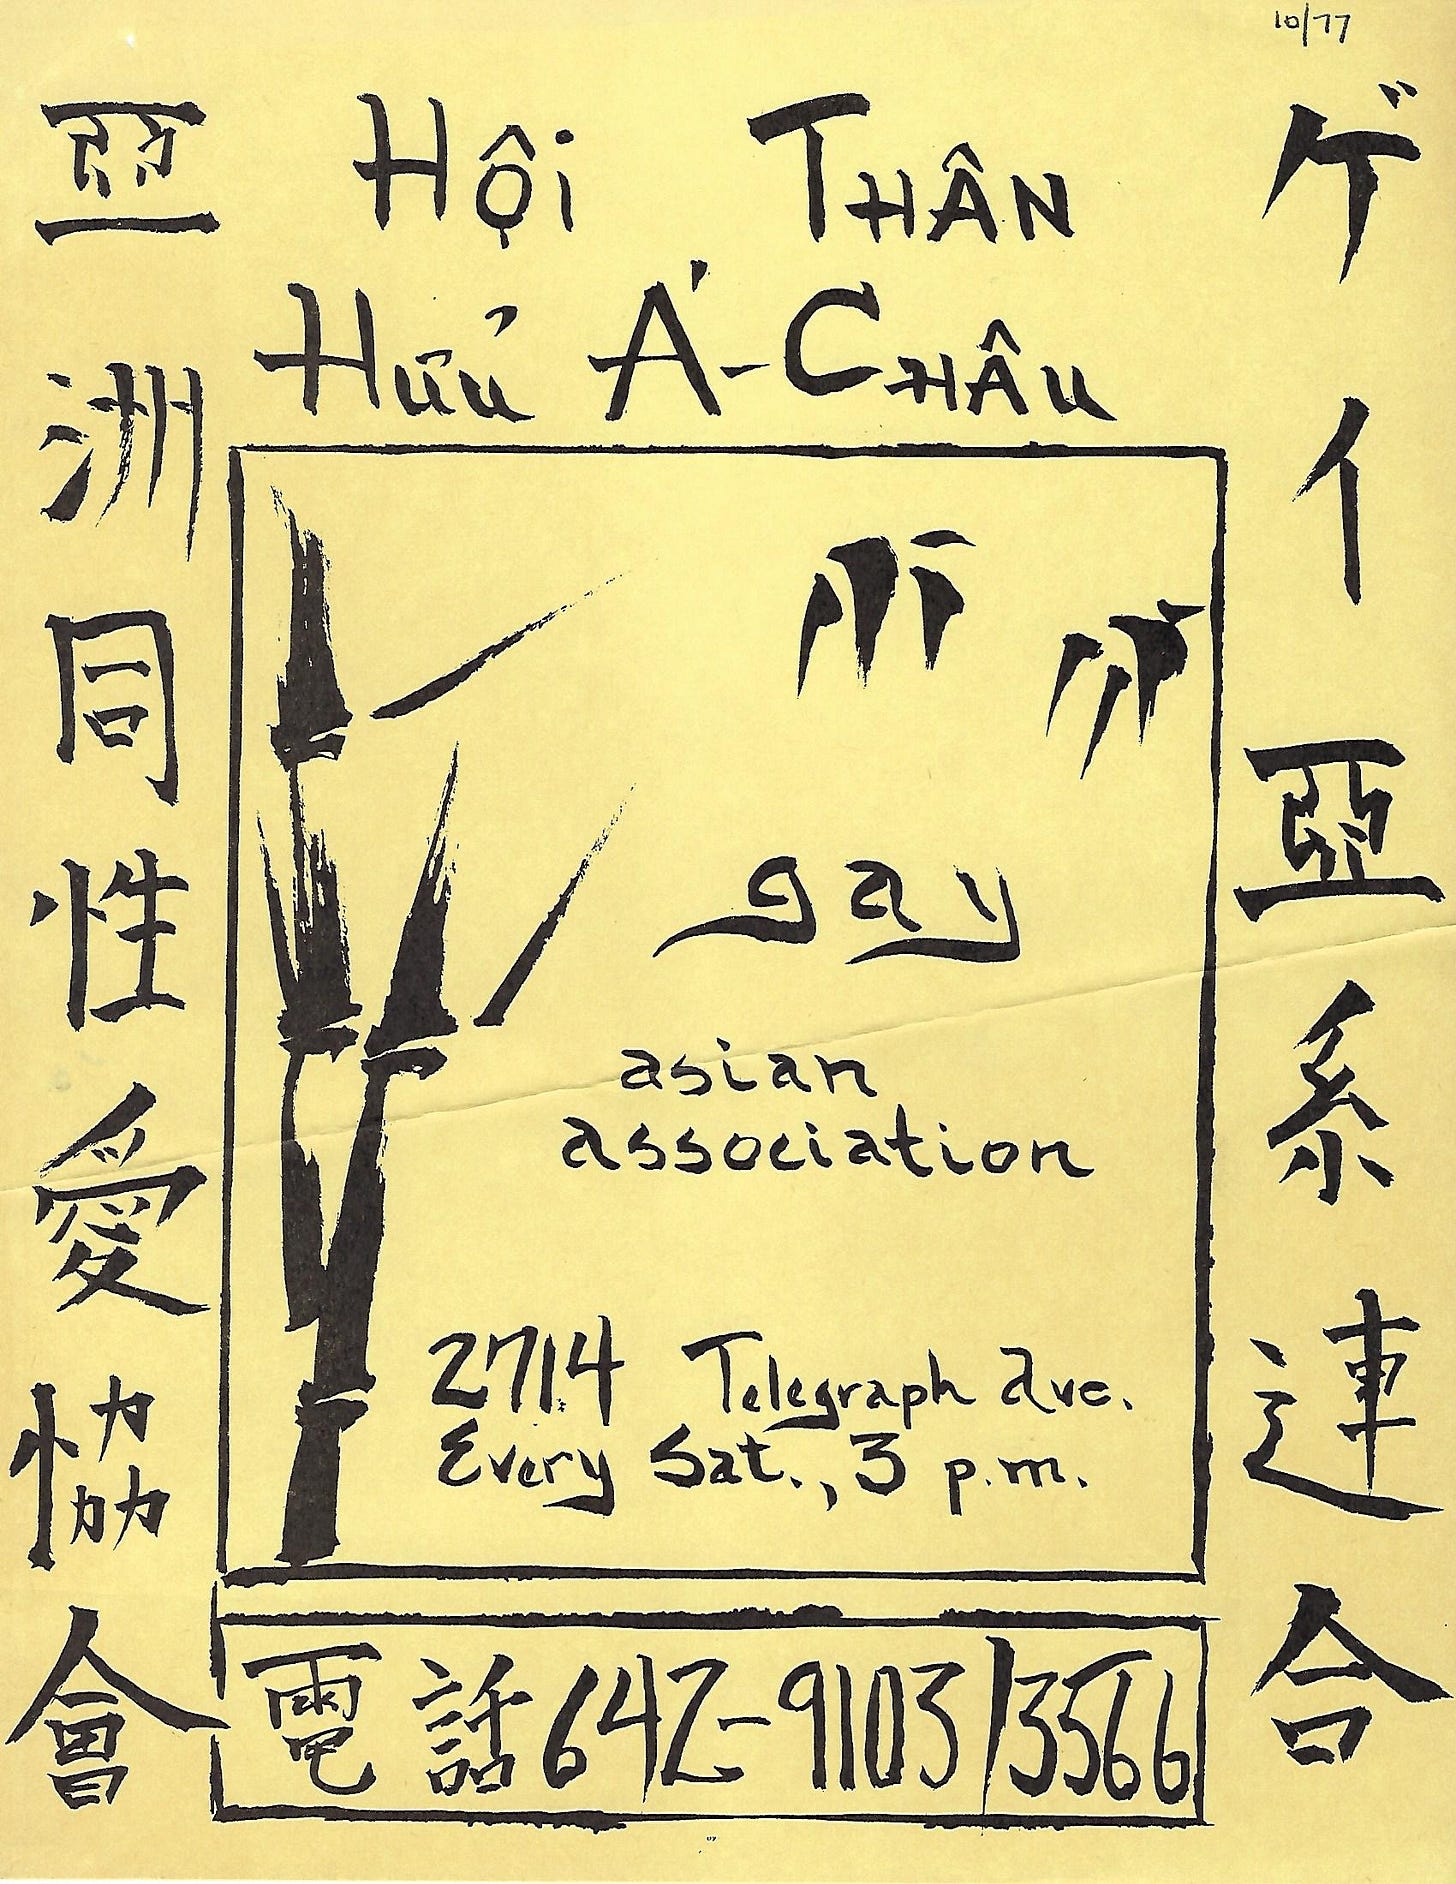 10/77
亞洲同性愛協會
HỘi THÂN
HỮỦ Á-CHÂU
ゲイ亞系連合
gay
asian
association
2714 Telegraph Ave.
Every Sat., 3 p.m.
電話642-9103/3566